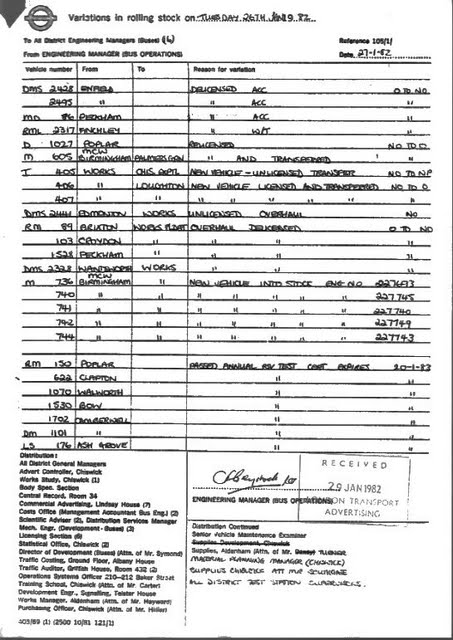 Variations in rolling stock on TUESDAY 26TH JAN 1982
To All District Engineering Managers (Buses) (6)
Reference 105/1/
From ENGINEERING MANAGER (BUS OPERATIONS)
Date 27-1-82
Vehicle number From To Reason for variation
DMS 2428 ENFIELD DELICENSED ACC O TO NO
2495 " ACC "
MD 86 PECKHAM " ACC "
RML 2317 FINCHLEY " W/T "
D 1027 POPLAR RELICENSED NO TO O
M 605 MCW BIRMINGHAM PALMERS GRN " AND TRANSFERRED "
T 405 WORKS CHIS. EXPTL NEW VEHICLE - UNLICENSED TRANSFER NO TO NP
406 " LOUGHTON NEW VEHICLE LICENSED AND TRANSFERRED NO TO O
407 " " " " " " " "
DMS 2444 EDMONTON WORKS UNLICENSED OVERHAUL NO
RM 89 BRIXTON WORKS FLOAT OVERHAUL DELICENSED O TO NO
103 CROYDON " " " "
1528 PECKHAM " " " "
DMS 2328 WANDSWORTH WORKS
M 736 MCW BIRMINGHAM " NEW VEHICLE INTO STOCK ENG NO 227693
740 " " " " " " " 227745
741 " " " " " " " 227740
742 " " " " " " " 227749
744 " " " " " " " 227743
RM 150 POPLAR PASSED ANNUAL PSV TEST CERT EXPIRES 20-1-83
622 CLAPTON " "
1070 WALWORTH " "
1530 BOW " "
1702 CAMBERWELL " "
DM 1101 " " "
LS 176 ASH GROVE " "
Distribution:
All District General Managers
Advert Controller, Chiswick
Works Study, Chiswick (1)
Body Spec. Section
Central Record, Room 34
Commercial Advertising, Lindsay House (7)
Costs Office (Management Accountant Bus Eng.) (2)
Scientific Adviser (2), Distribution Services Manager
Mech. Engr. (Development - Buses) (3)
Licensing Section (6)
Statistical Office, Chiswick (2)
Director of Development (Buses) (Attn. of Mr. Symond)
Traffic Costing, Ground Floor, Albany House
Traffic Auditor, Griffith House, Room 432 (2)
Operations Systems Officer 210-212 Baker Street
Training School, Chiswick (Attn. of Mr. Carter)
Development Engr., Signalling, Telstar House
Works Manager, Aldenham (Attn. of Mr. Hayward)
Purchasing Officer, Chiswick (Attn. of Mr. Hillier)
ENGINEERING MANAGER (BUS OPERATIONS)
RECEIVED
29 JAN 1982
LONDON TRANSPORT
ADVERTISING
Distribution Continued
Senior Vehicle Maintenance Examiner
Supplies Development, Chiswick
Supplies, Aldenham (Attn. of Mr. TURNER
MATERIAL PLANNING MANAGER (CHISWICK)
SUPPLIES CHISWICK ATT MR
ALL DISTRICT TEST STATION
403/89 (1) (2500 10/81 121/1)